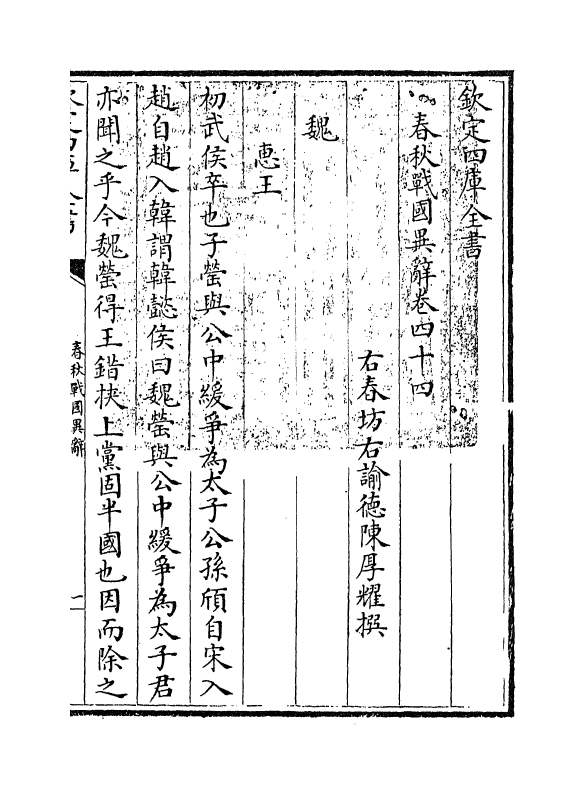 欽定四庫全書
春秋戰國異辭卷四十四
右春坊右諭德陳厚耀撰
魏
惠王
初武侯卒也子罃與公中緩爭為太子公孫頎自宋入
趙自趙入韓謂韓懿侯曰魏罃與公中緩爭為太子君
亦聞之乎今魏罃得王錯挾上黨固半國也因而除之
春秋戰國異辭
一